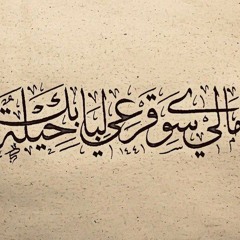 مالي سوى قرعي لبابك حيلة ١٤٤١